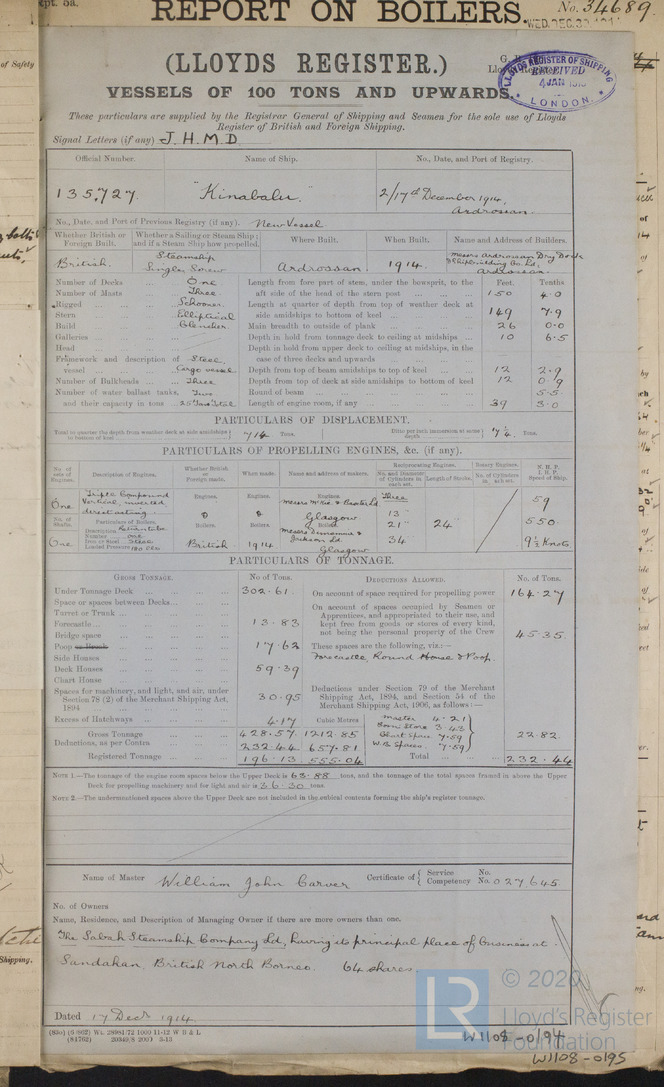 REPORT ON BOILERS.
No. 34689
of Safety
(LLOYDS REGISTER.)
VESSELS OF 100 TONS AND UPWARDS.
LLOYDS REGISTER OF SHIPPING
RECEIVED
LONDON.
These particulars are supplied by the Registrar General of Shipping and Seamen for the sole use of Lloyds
Register of British and Foreign Shipping.
Signal Letters (if any) J.H.M.D.
Official Number. Name of Ship. No., Date, and Port of Registry.
135,727. "Kinabalu." 2/17th December 1914,
Ardrossan.
No., Date, and Port of Previous Registry (if any). New Vessel
Whether British or Foreign Built. Whether a Sailing or Steam Ship; and if a Steam Ship how propelled. Where Built. When Built. Name and Address of Builders.
British. Steamship Single Screw Ardrossan. 1914. Messrs Ardrossan Dry Dock & Shipbuilding Co. Ld, Ardrossan.
Number of Decks One Length from fore part of stem, under the bowsprit, to the Feet. Tenths
Number of Masts Three aft side of the head of the stern post 150 4.0
Rigged Schooner. Length at quarter of depth from top of weather deck at
Stern Elliptical side amidships to bottom of keel 149 7.9
Build Clencher. Main breadth to outside of plank 26 0.0
Galleries Depth in hold from tonnage deck to ceiling at midships 10 6.5
Head Depth in hold from upper deck to ceiling at midships, in the
Framework and description of Steel, case of three decks and upwards
vessel Cargo vessel Depth from top of beam amidships to top of keel 12 2.9
Number of Bulkheads Three Depth from top of deck at side amidships to bottom of keel 12 0.9
Number of water ballast tanks, Two Round of beam 5.5
and their capacity in tons Length of engine room, if any 39 3.0
PARTICULARS OF DISPLACEMENT.
Total to quarter the depth from weather deck at side amidships to bottom of keel 714 Tons. Ditto per inch immersion at same depth 7¼ Tons.
PARTICULARS OF PROPELLING ENGINES, &c. (if any).
No. of sets of Engines. Description of Engines. Whether British or Foreign made. When made. Name and address of makers. Reciprocating Engines. Rotary Engines. N.H.P. I.H.P. Speed of Ship.
No. and Diameter of Cylinders in each set. Length of Stroke. No. of Cylinders in each set.
One Triple Compound Vertical, inverted direct acting. Engines. Engines. Engines. Three 59
Glasgow 13"
No. of Shafts. Particulars of Boilers. Boilers. Boilers. Boilers. 21" 24" 550
Description
Number one
One Iron or Steel Steel British 1914 34" 9½ Knots
Loaded Pressure 180 lbs Glasgow
PARTICULARS OF TONNAGE.
Gross Tonnage. No. of Tons. Deductions Allowed. No. of Tons.
Under Tonnage Deck 302.61 On account of space required for propelling power 164.27
Space or spaces between Decks On account of spaces occupied by Seamen or
Turret or Trunk Apprentices, and appropriated to their use, and
Forecastle 13.83 kept free from goods or stores of every kind,
Bridge space not being the personal property of the Crew 45.35
Poop 17.62 These spaces are the following, viz.:—
Side Houses Forecastle Round House & Poop
Deck Houses 59.39
Chart House
Spaces for machinery, and light, and air, under Deductions under Section 79 of the Merchant
Section 78 (2) of the Merchant Shipping Act, 1894 30.95 Shipping Act, 1894, and Section 54 of the Merchant Shipping Act, 1906, as follows:—
Excess of Hatchways 4.17 Cubic Metres Master 4.21
Bosn Store 3.43
Gross Tonnage 428.57 1212.85 Chart Space 7.59 22.82
Deductions, as per Contra 232.44 657.81 W.B. Spaces. 7.59
Registered Tonnage 196.13 555.04 Total 232.44
Note 1.—The tonnage of the engine room spaces below the Upper Deck is 63.88 tons, and the tonnage of the total spaces framed in above the Upper
Deck for propelling machinery and for light and air is 36.30 tons
Note 2.—The undermentioned spaces above the Upper Deck are not included in the cubical contents forming the ship's register tonnage.
Name of Master William John Carver Certificate of { Service No. Competency No. 027,645
No. of Owners
Name, Residence, and Description of Managing Owner if there are more owners than one.
The Sabah Steamship Company Ld, having its principal place of business at
Sandakan, British North Borneo. 64 shares.
Dated 17 Decr 1914
© 2020
LR
Lloyd's Register
Foundation
W1108-0194
W1108-0195
Shipping.